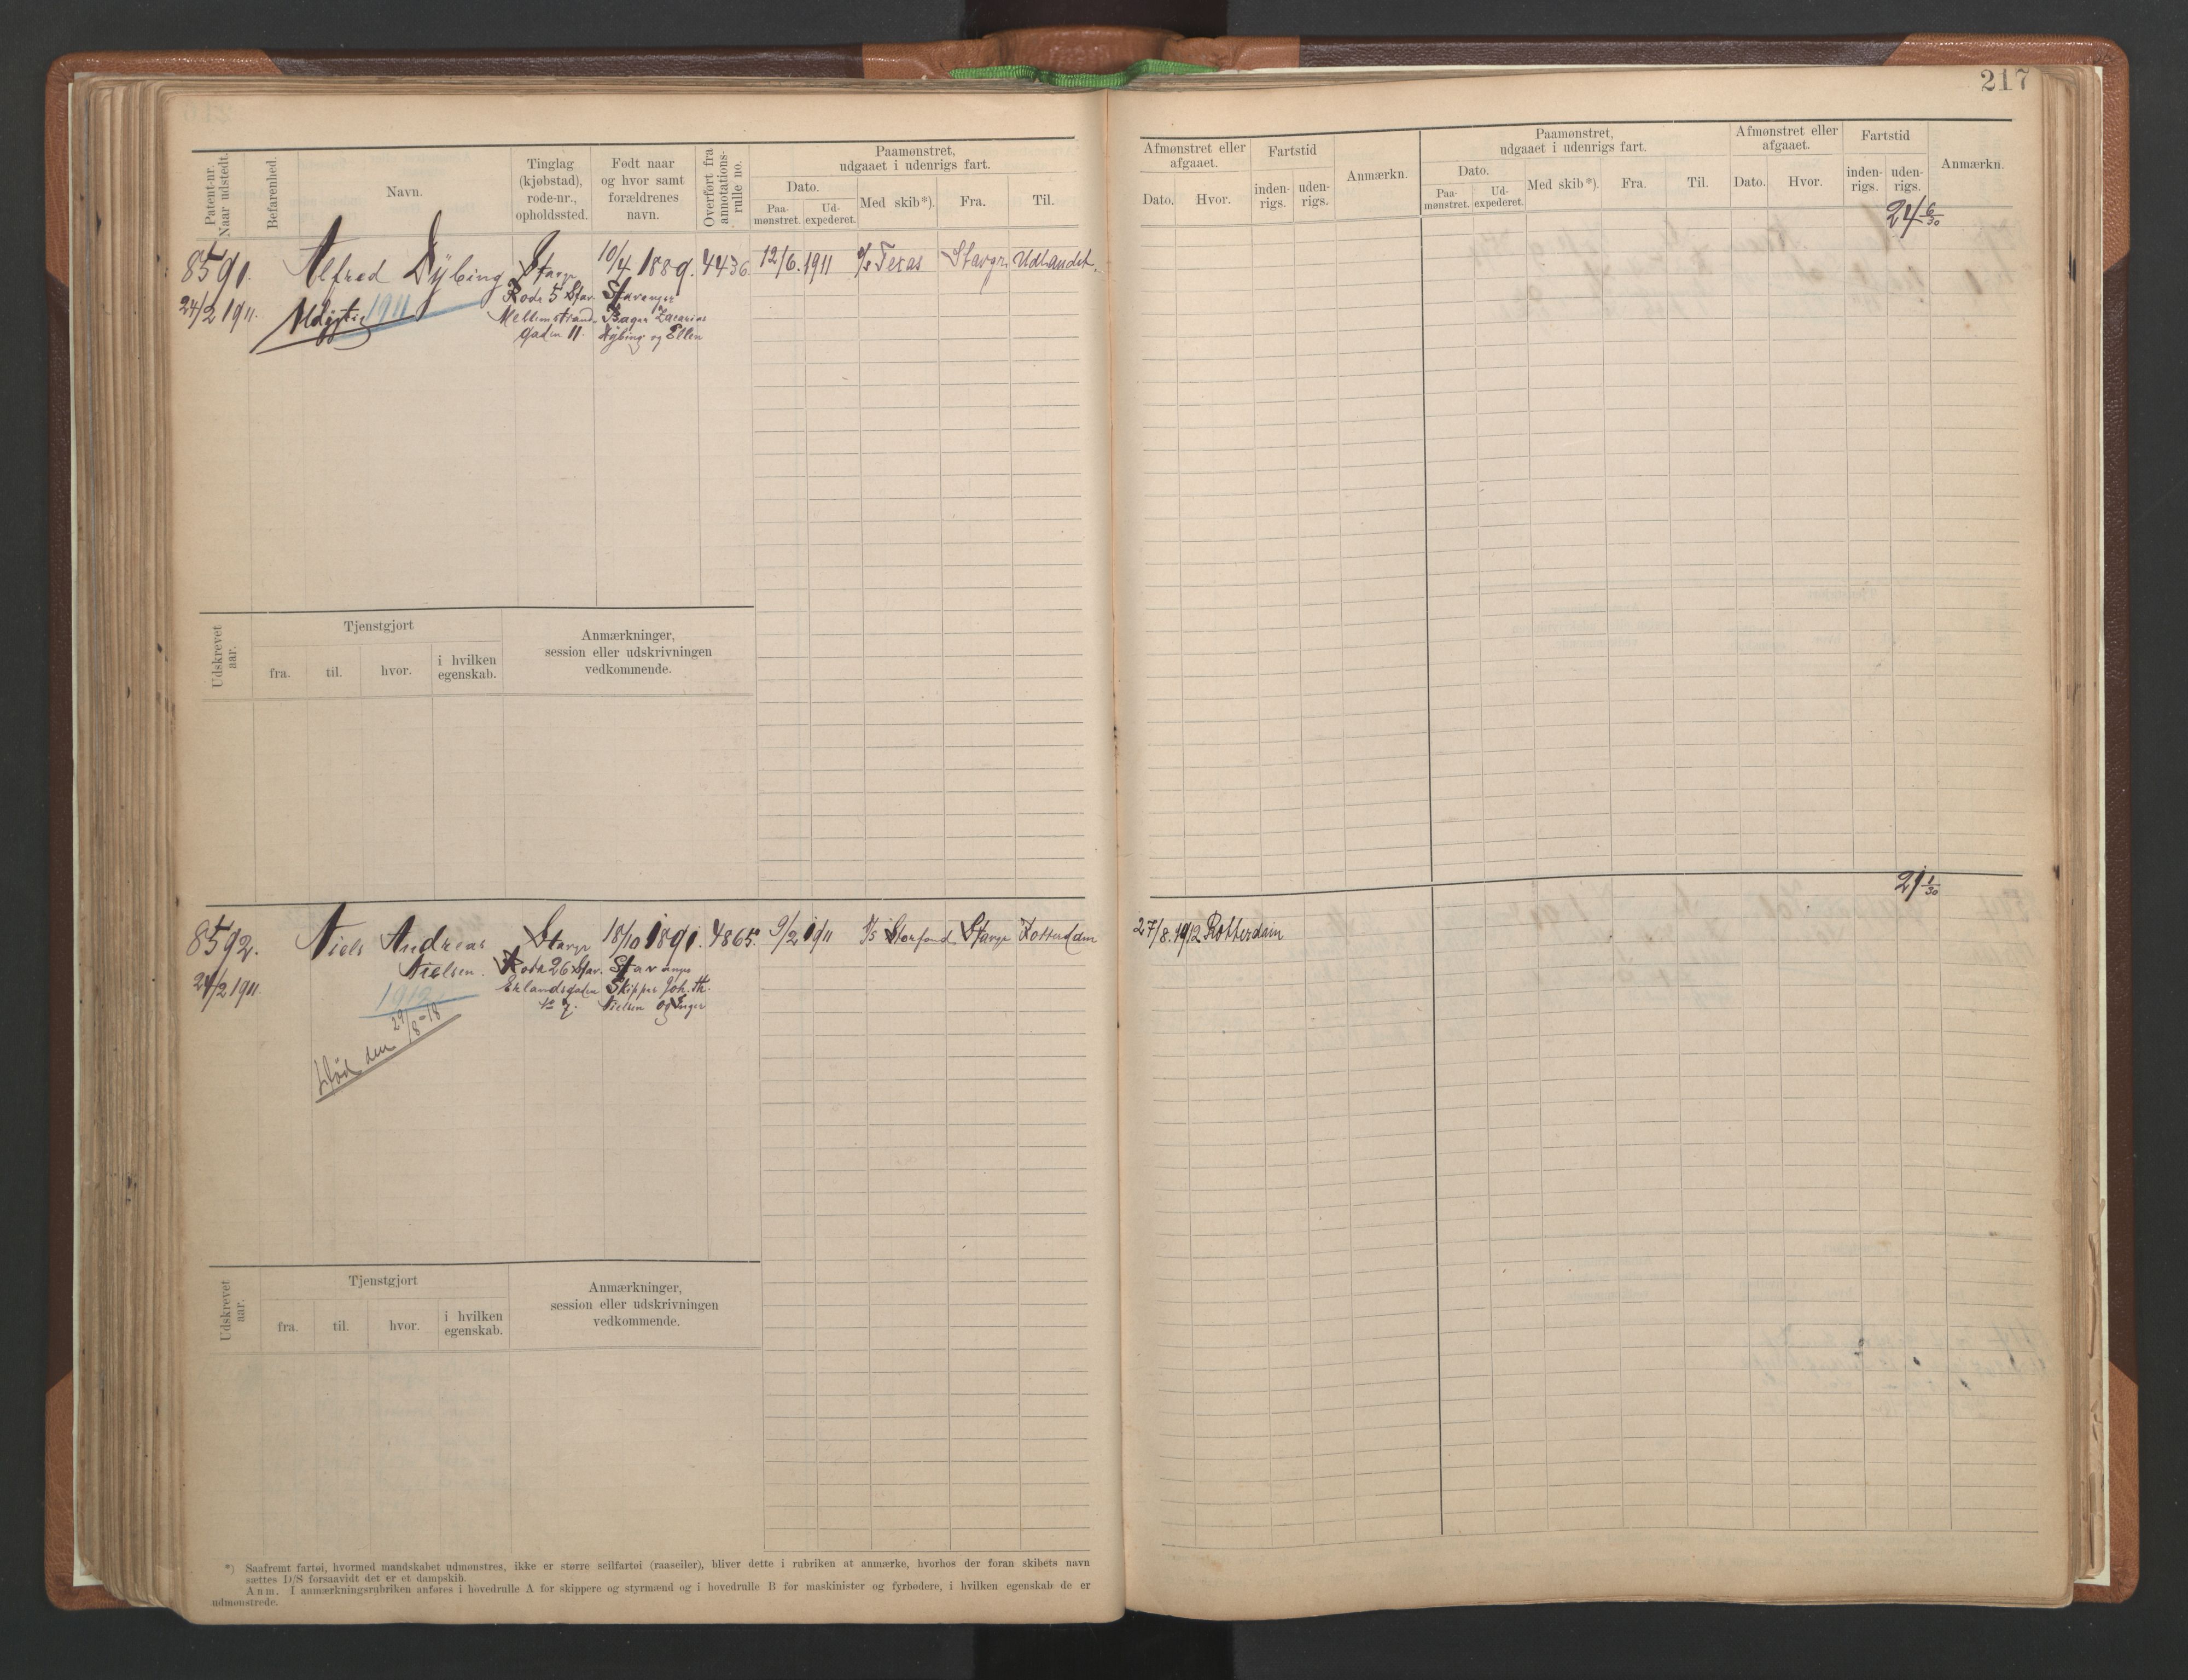 217
Patent-nr.
Naar udstedt.
Befarenhed.
Navn.
Tinglag
(kjøbstad),
rode-nr.,
opholdssted.
Født naar
og hvor samt
forældrenes
navn.
Overført fra
annotations-
rulle no.
Paamønstret,
udgaaet i udenrigs fart.
Dato.
Paa-
mønstret.
Ud-
expederet.
Med skib*).
Fra.
Til.
Afmønstret eller
afgaaet.
Dato.
Hvor.
Fartstid
inden-
rigs.
uden-
rigs.
Anmærkn.
Paamønstret,
udgaaet i udenrigs fart.
Dato.
Paa-
mønstret.
Ud-
expederet.
Med skib*).
Fra.
Til.
Afmønstret eller
afgaaet.
Dato.
Hvor.
Fartstid
inden-
rigs.
uden-
rigs.
Anmærkn.
24 6/30
8591.
24/2 1911.
Alfred Dybing
1911
Stavgr
Rode 5 Stav.
Mellemstrand-
gaden 11.
10/4 1889.
Stavanger
Bager Zacarias
Dybing og Ellen
4436
12/6. 1911
Texas
Stavgr.
Udlandet.
Udskrevet
aar.
Tjenstgjort
fra.
til.
hvor.
i hvilken
egenskab.
Anmærkninger,
session eller udskrivningen
vedkommende.
21 1/30
8592.
24/2 1911.
Niels Andreas
Nielsen.
1912
Død den 29/8-18
Stavgr
Rode 26 Stav.
Erlandsgaden
no 7.
18/10 1891.
Stavanger
Skipper Joh. Th.
Nielsen og Inger
4865.
9/2 1911
Storfond
Stavgr
Rotterdam
27/8. 1912 Rotterdam
Udskrevet
aar.
Tjenstgjort
fra.
til.
hvor.
i hvilken
egenskab.
Anmærkninger,
session eller udskrivningen
vedkommende.
*) Saafremt fartøi, hvormed mandskabet udmønstres, ikke er større seilfartøi (raaseiler), bliver dette i rubriken at anmærke, hvorhos der foran skibets navn
sættes D/S forsaavidt det er et dampskib.
Anm. I anmærkningsrubriken anføres i hovedrulle A for skippere og styrmænd og i hovedrulle B for maskinister og fyrbødere, i hvilken egenskab de er
udmønstrede.